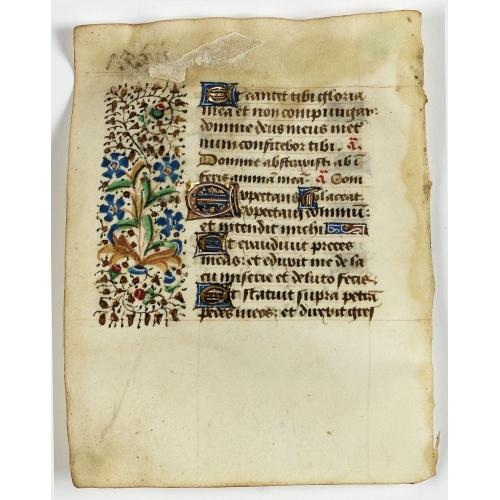 Ut cantet tibi gloria
mea et non compungar
domine deus meus in et
num confitebor tibi. a
Domine abstraxisti ab i
feris animā meā. a Com
Expectans placeat
expectavi dominū:
et intendit michi
Et exaudivit preces
meas: et eduxit me de la
cu miserie et de luto fecis
Et statuit supra petrā
pedes meos: et direxit gres